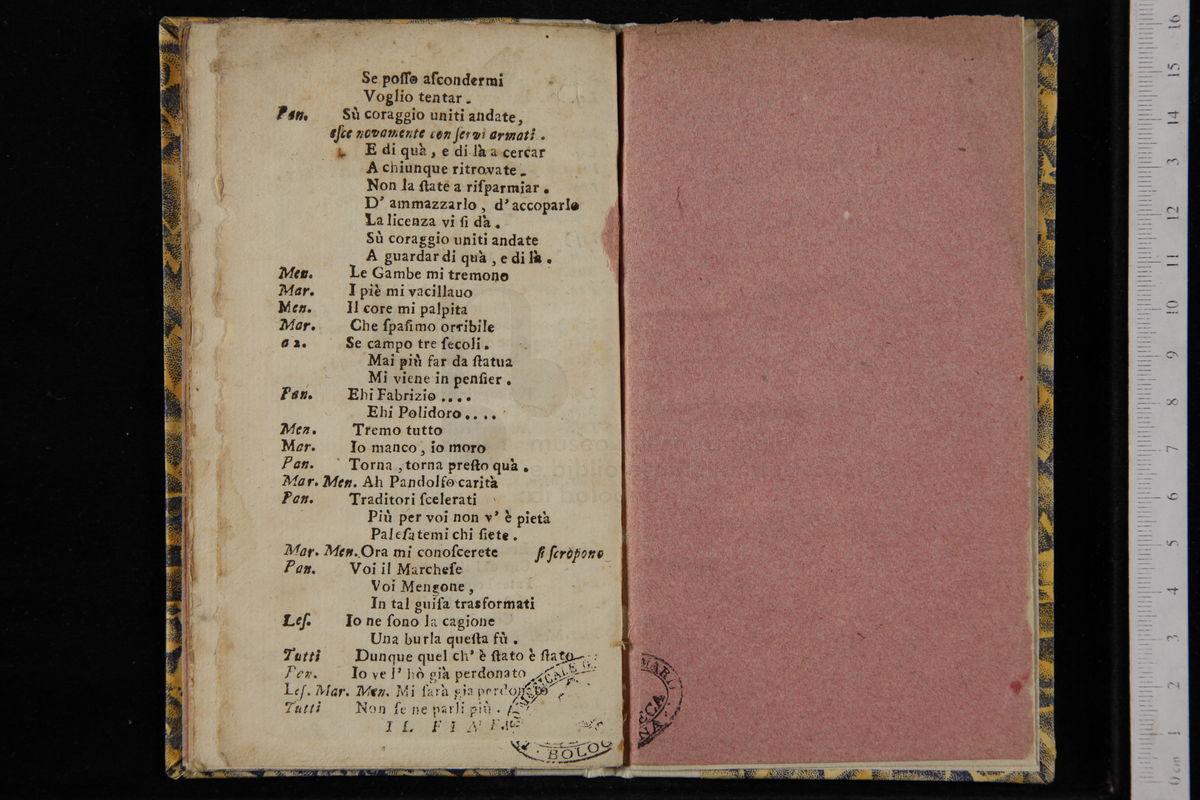 Se poſſo aſcondermi
Voglio tentar.
Pan. Sù coraggio uniti andate,
eſce novamente con ſervi armati.
E di quà, e di là a cercar
A chiunque ritrovate.
Non la ſtate a riſparmiar.
D' ammazzarlo, d'accoparlo
La licenza vi ſi dà.
Sù coraggio uniti andate
A guardar di quà, e di là.
Men. Le Gambe mi tremono
Mar. I piè mi vacillauo
Men. Il core mi palpita
Mar. Che ſpaſimo orribile
a 2. Se campo tre ſecoli.
Mai più far da ſtatua
Mi viene in penſier.
Pan. Ehi Fabrizio....
Ehi Polidoro....
Men. Tremo tutto
Mar. Io manco, io moro
Pan. Torna, torna preſto quà.
Mar. Men. Ah Pandolfo carità
Pan. Traditori ſcelerati
Più per voi non v' è pietà
Paleſatemi chi ſiete.
Mar. Men. Ora mi conoſcerete ſi ſcropono
Pan. Voi il Marcheſe
Voi Mengone,
In tal guiſa trasformati
Leſ. Io ne ſono la cagione
Una burla queſta fù.
Tutti Dunque quel ch' è ſtato è ſtato
Pan. Io ve l' hò già perdonato
Leſ. Mar. Men. Mi ſarà gia perdonato
Tutti Non ſe ne parli più.
IL FINE.
BOLOG
museo
e biblio
di bolo
16
15
14
3
12
11
10
9
8
7
6
5
4
3
2
1
0 cm